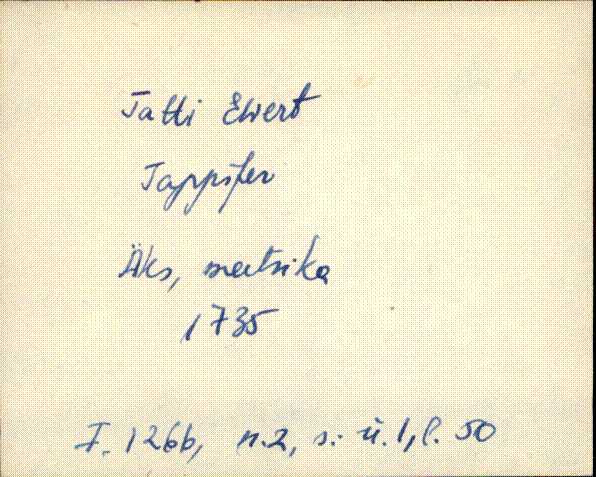 Tatti Ewert
Tappister
Äks, meetrika
1735
F. 1266, n. 2, s. ü. 1, l. 50